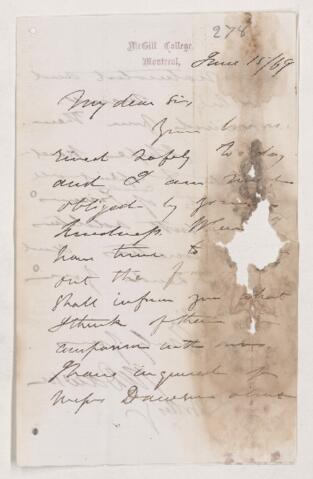 278
McGill College,
Montreal,
June 15/69
My dear Sir
Your
rived safely today
and I am
obliged by your
kindness. When
have time to
out the
shall inform you what
I think of them
comparison with
I have enquired of
Messrs Dawson about